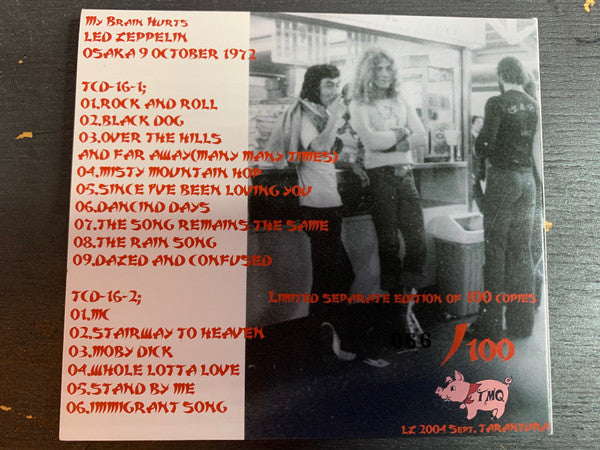 My Brain Hurts
LED ZEPPELIN
OSAKA 9 OCTOBER 1972
TCD-16-1;
01.ROCK AND ROLL
02.BLACK DOG
03.OVER THE HILLS
AND FAR AWAY(MANY MANY TIMES)
04.MISTY MOUNTAIN HOP
05.SINCE I'VE BEEN LOVING YOU
06.DANCIND DAYS
07.THE SONG REMAINS THE SAME
08.THE RAIN SONG
09.DAZED AND CONFUSED
TCD-16-2;
01.MC
02.STAIRWAY TO HEAVEN
03.MOBY DICK
04.WHOLE LOTTA LOVE
05.STAND BY ME
06.IMMIGRANT SONG
Limited separate edition of 100 copies
066 /100
TMQ
LZ 2004 Sept. TARANTURA